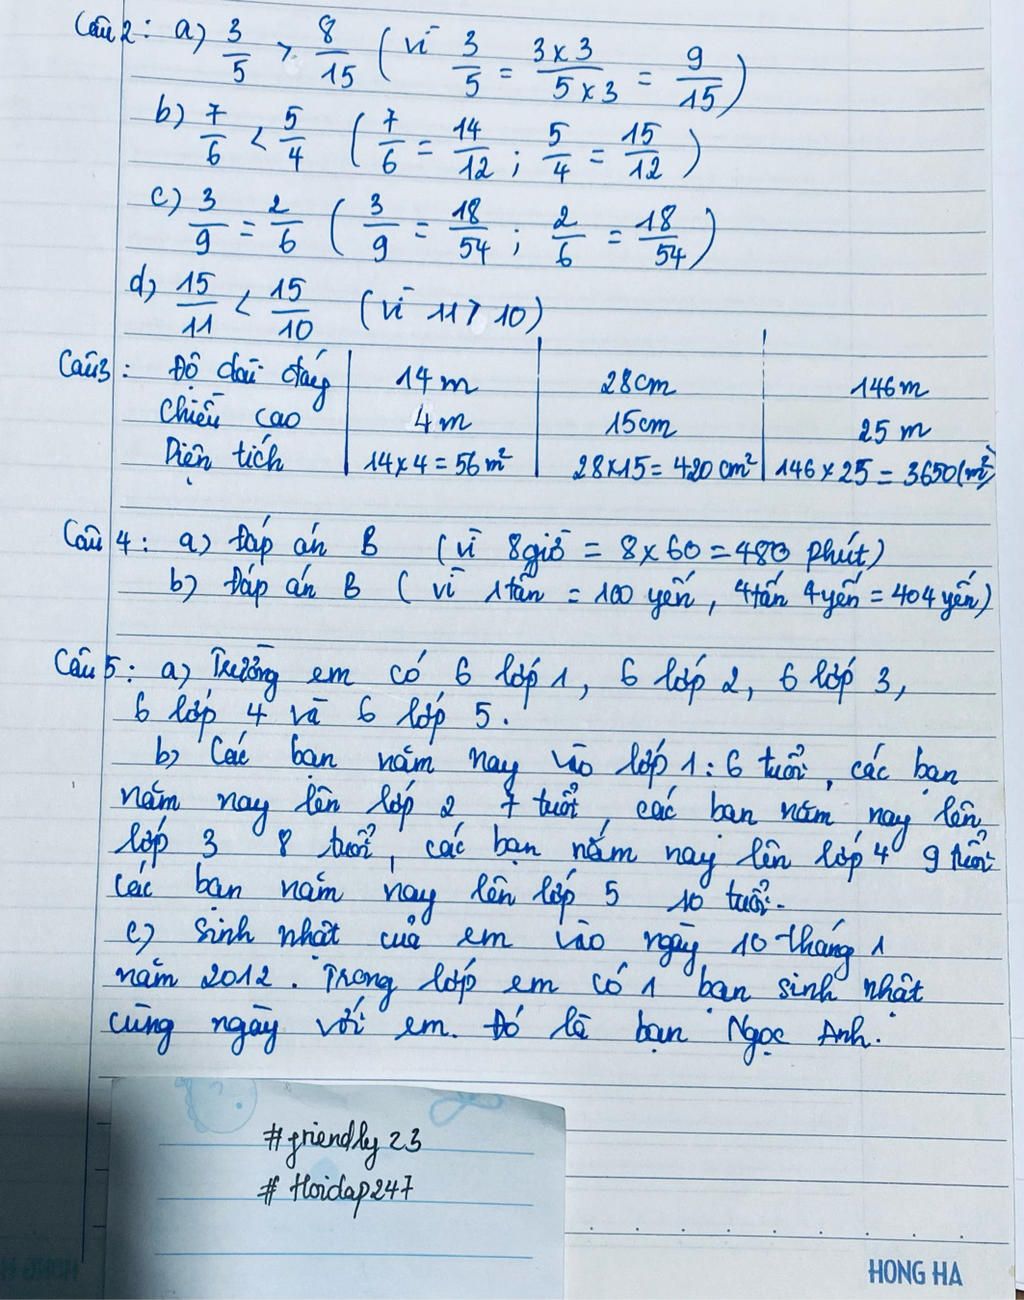 Câu 2: a) 3/5 > 8/15 ( vì 3/5 = 3x3/5x3 = 9/15 )
b) 7/6 < 5/4 ( 7/6 = 14/12 ; 5/4 = 15/12 )
c) 3/9 = 2/6 ( 3/9 = 18/54 ; 2/6 = 18/54 )
d) 15/11 < 15/10 ( vì 11 > 10 )
Câu 3: Độ dài đáy | 14 m | 28cm | 146 m
Chiều cao | 4 m | 15cm | 25 m
Diện tích | 14x4 = 56 m² | 28x15 = 420 cm² | 146 x 25 = 3650 (m²)
Câu 4: a) Đáp án B ( vì 8 giờ = 8 x 60 = 480 phút )
b) Đáp án B ( vì 1 tấn = 100 yến, 4 tấn 4 yến = 404 yến )
Câu 5: a) Trường em có 6 lớp 1, 6 lớp 2, 6 lớp 3,
6 lớp 4 và 6 lớp 5.
b) Các bạn năm nay vào lớp 1: 6 tuổi, các bạn
năm nay lên lớp 2 7 tuổi, các bạn năm nay lên
lớp 3 8 tuổi, các bạn năm nay lên lớp 4 9 tuổi
các bạn năm nay lên lớp 5 10 tuổi.
c) Sinh nhật của em vào ngày 10 tháng 1
năm 2012. Trong lớp em có 1 bạn sinh nhật
cùng ngày với em. Đó là bạn Ngọc Anh.
#friendly23
# Hoidap247
HONG HA
HONG HA